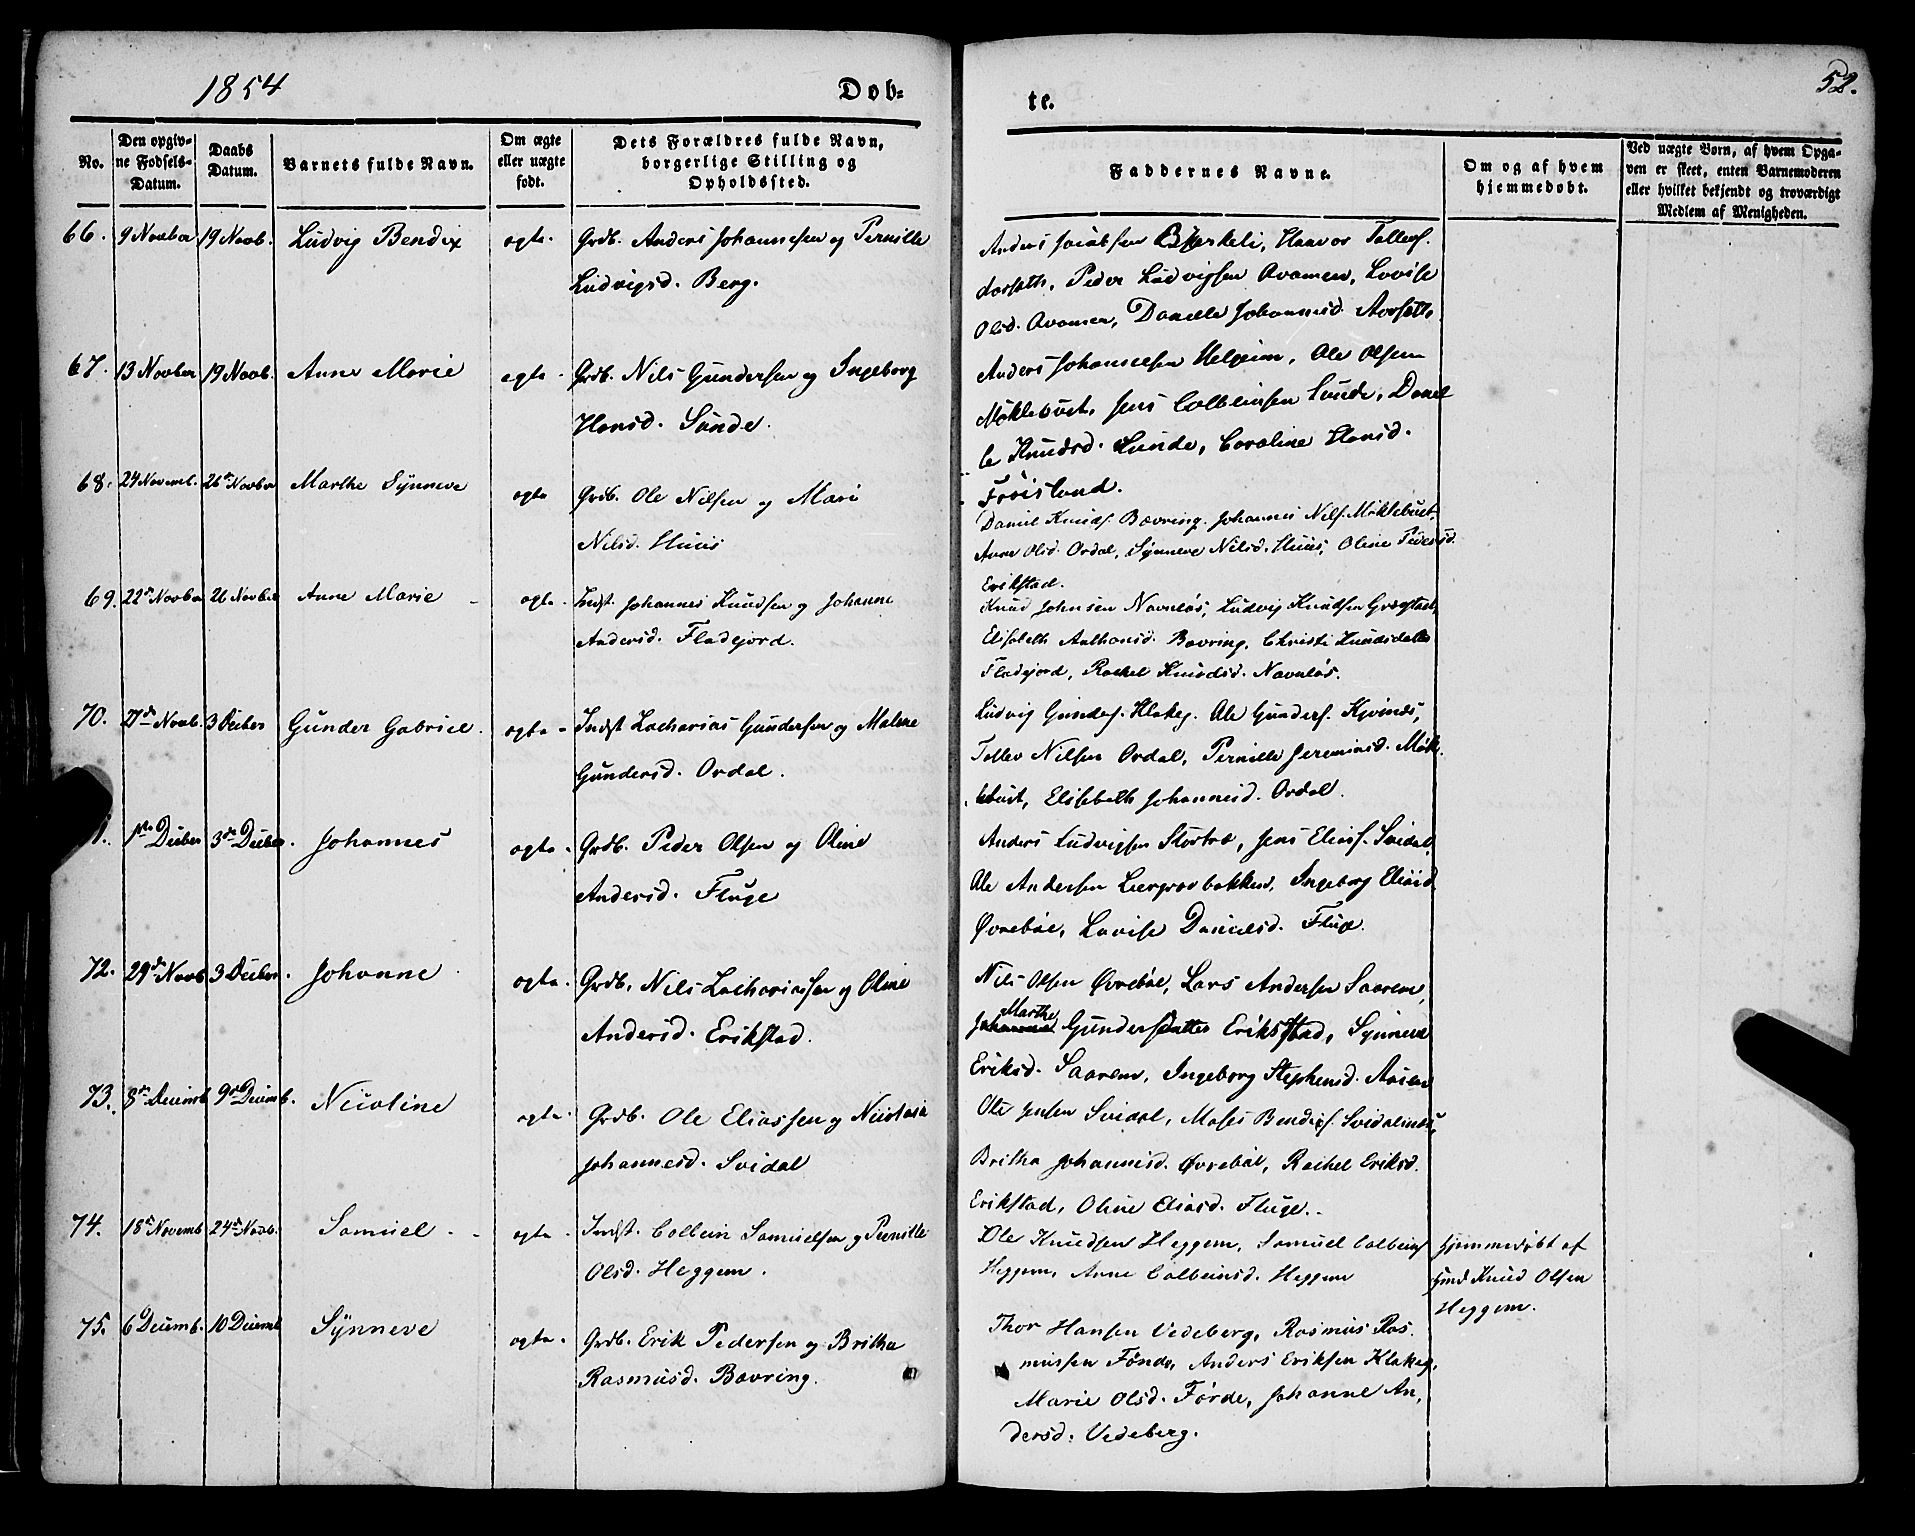 1854
Dob=
te.
52.
No.
Den opgiv-
ne Fodsels-
Datum.
Daabs
Datum.
Barnets fulde Navn.
Om ægte
eller uægte
født.
Dets Forældres fulde Navn,
borgerlige Stilling og
Opholdssted.
Faddernes Navne.
Om og af hvem
hjemmedøbt.
Ved uægte Born, af hvem Opga-
ven er skeet, enten Barnemoderen
eller hvilket bekjendt og troværdigt
Medlem af Menigheden.
66. 9 Novber 19 Novb. Ludvig Bendix ægte. Grdb. Anders Johannesen og Pernille
Ludvigsd. Berg.
Anders Jacobsen Bjørkeli, Haavor Tollefs.
Peder Ludvigsen Avamen, Lovise
Olsd. Avamen, Danielle Johannesd. Aarseth.
67. 13 Novber 19 Novb. Anne Marie ægte Grdb. Nils Gundersen og Ingeborg
Hansd. Sunde.
Anders Johannesen Helgeim, Ole Olsen
Møklebust, Jens Colbeinsen Sunde, Daniel
le Knudsd. Sunde, Caroline Hansd.
Frøisland.
68. 24 Novemb. 26de Novber Marthe Synneve ægte Grdb. Ole Nilsen og Mari
Nilsd. Huus
Daniel Knuds. Bovring. Johannes Nils. Møklebust,
Anne Olsd. Ordal, Synneve Nilsd. Huus, Oline Pedersd.
Erikstad.
69. 22de Novber 26 Novber Anne Marie ægte. Indst. Johannes Knudsen og Johanne
Andersd. Fladejord.
Knud Johnsen Navnløs, Ludvig Knudsen
Elisabeth Anthonsd. Bovring, Christi Knudsdatter
Fladejord, Rachel Knudsd. Navnløs.
70. 27de Novb. 3 Decber Gunder Gabriel. ægte Indst Zacharias Gundersen og Malene
Gundersd. Ordal.
Ludvig Gunders. Klakeg. Ole Gunders. Kjvinnes,
Tollev Nilsen Ordal, Pernille Jeremiasd. Møk
lebust, Elisabeth Johannesd. Ordal.
1. 1ste Decber 3de Decber. Johannes ægte. Grdb. Peder Olsen og Oline
Andersd. Fluge
Anders Ludvigsen Stortræ, Jens Elias. Svidal,
Ole Andersen Leergrovbakken, Ingeborg Eliasd.
Øvrebøe, Lovise Danielsd. Fluge.
72. 29de Novb 3 Decber. Johanne ægte. Grdb. Nils Zachariasen og Oline
Andersd. Erikstad.
Nils Olsen Øvrebøe, Lars Andersen Saarem,
Marthe
Johanne Gundersdatter Erikstad, Synneve
Eriksd. Saarem, Ingeborg Stephensd. Aasen
73. 8de Decemb 9de Decemb. Nicoline ægte. Grdb. Ole Eliassen og Nicolaia
Johannesd. Svidal
Ole Jensen Svidal, Moses Bendixs. Svidalnes,
Britha Johannesd. Øvrebøe, Rachel Eriksd.
Erikstad, Oline Eliasd. Fluge.
74. 18de Novemb 24de Novb. Samuel ægte. Indst. Colbein Samuelsen og Pernille
Olsd. Heggem.
Ole Knudsen Heggem, Samuel Colbeins
Heggem, Anne Colbeinsd. Heggem
Hjemmedøbt af
Knud Olsen
Heggem.
75. 6 Decemb. 10 Decemb Synneve ægte. Grdb. Erik Pedersen og Britha
Rasmusd. Bovring.
Thor Hansen Vedeberg, Rasmus Ras
mussen Fønde, Anders Eriksen Klakeg,
Marie Olsd. Førde, Johanne An,
dersd. Vedeberg.